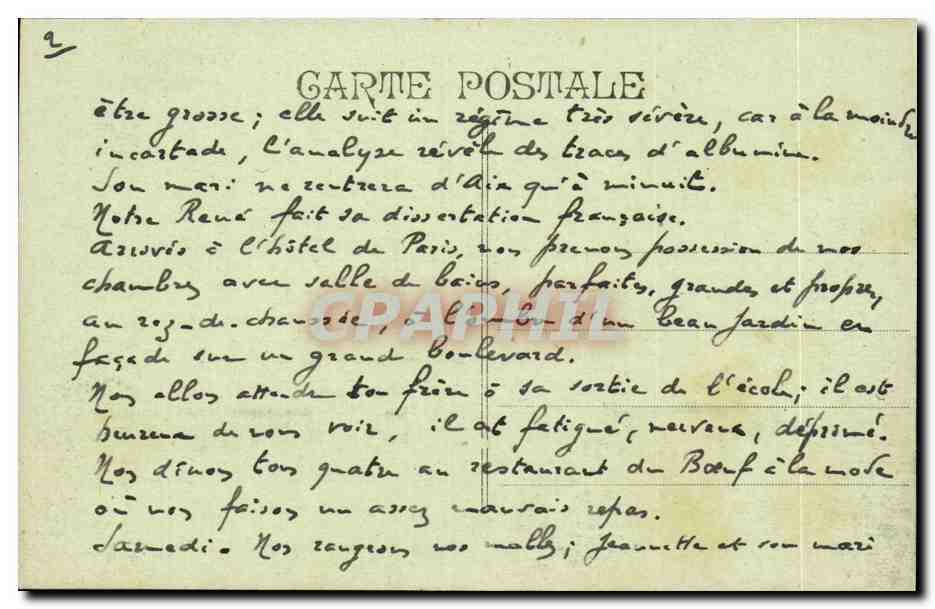 2
CARTE POSTALE
être grosse ; elle suit un régime très sévère, car à la moindre
incartade, l'analyse révèle des traces d'albumine.
Son mari ne rentrera d'Aix qu'à minuit.
Notre René fait sa dissertation française.
Arrivés à l'hôtel de Paris, nous prenons possession de nos
chambres avec salle de bains, parfaites, grandes et propres,
au rez-de-chaussée, à l'ombre d'un beau jardin en
façade sur un grand boulevard.
Nous allons attendre ton frère à sa sortie de l'école ; il est
heureux de nous voir, il est fatigué, nerveux, déprimé.
Nous dînons tous quatre au restaurant du Bœuf à la mode
où nous faisons un assez mauvais repas.
Samedi. Nous rangeons nos malles ; Jeannette et son mari
CPAPHIL